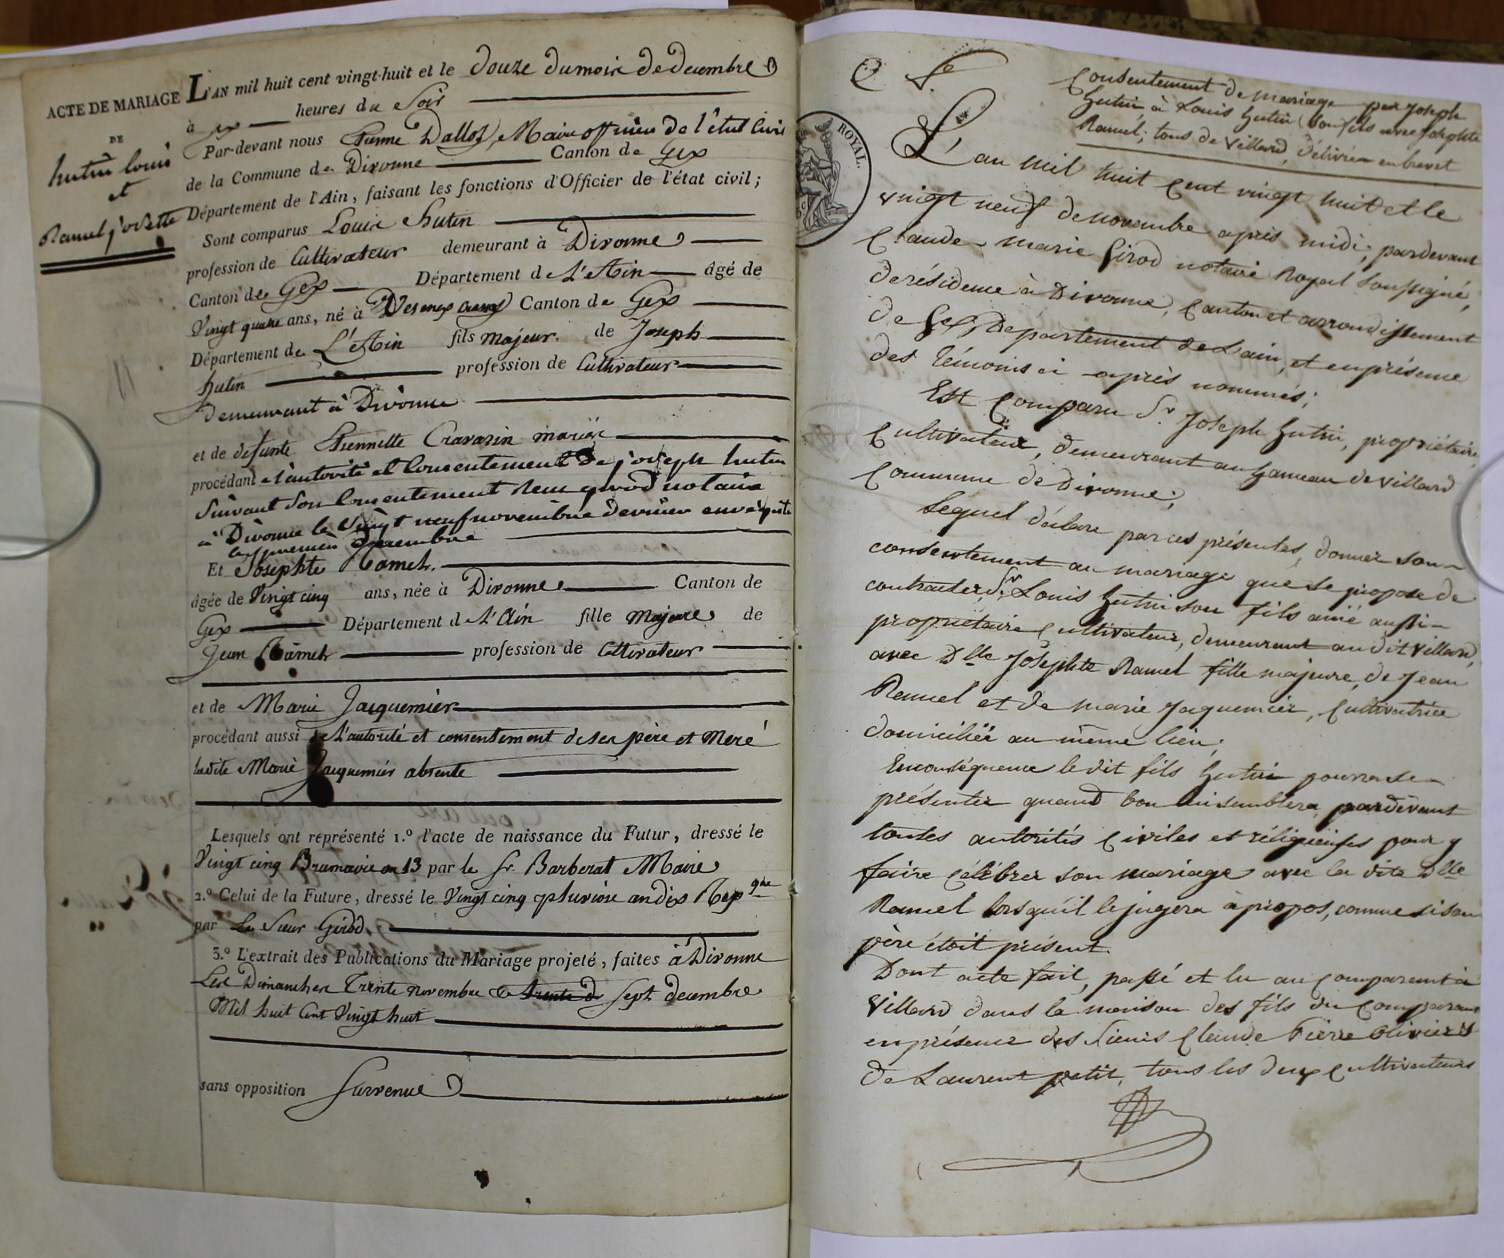 ACTE DE MARIAGE
DE
hutin louis
et
Ramel josette
L'AN mil huit cent vingt-huit et le douze du mois de decembre
à six heures du Soir
Par-devant nous Dalloz, Maire officier de l'état Civil
de la Commune de Divonne Canton de Gex
Département de l'Ain, faisant les fonctions d'Officier de l'état civil;
Sont comparus Louis hutin
profession de Cultivateur demeurant à Divonne
Canton de Gex Département de L'Ain âgé de
Vingt quatre ans, né à Canton de Gex
Département de L'Ain fils majeur de Joseph
hutin profession de Cultivateur
demeurant à Divonne
et de defunte mariée
procédant de l'autorité et Consentement de joseph hutin
Suivant Son Consentement notaire
à Divonne le Vingt neuf novembre dernier enregistré
le premier Decembre
Et Josephte Ramel
âgée de Vingt cinq ans, née à Divonne Canton de
Gex Département de L'Ain fille Majeure de
Jean Ramel profession de Cultivateur
et de Marie Jacquemier
procédant aussi de L'autorité et consentement de ses père et Meré
ladite Marie Jacquemier absente
Lesquels ont représenté 1.º l'acte de naissance du Futur, dressé le
Vingt cinq Brumaire an 13 par le Sr Barberat Maire
2.º Celui de la Future, dressé le Vingt cinq pluviose an dix Rep
par Le Sieur Girod
3.º L'extrait des Publications du Mariage projeté, faites à Divonne
Les Dimanches Trente novembre & Sept decembre
Mil huit Cent Vingt huit
sans opposition Survenue
ROYAL.
Consentement de mariage par Joseph
hutin à Louis hutin son fils avec Josephte
Ramel; tous de Villard, délivré en brevet
L'an mil huit cent vingt huit et le
vingt neuf de novembre après midi; pardevant
Claude marie Girod notaire Royal Soussigné,
de résidence à Divonne, Canton et arrondissement
de Gex, Departement de L'ain, et en présence
des témoins ci après nommés;
Est Comparu Sr. Joseph hutin, propriétaire
Cultivateur, demeurant au hameau de Villard
Commune de Divonne;
Lequel déclare par ces présentes, donner son
consentement au mariage que se propose de
contracter Sr. Louis hutin son fils ainé aussi
propriétaire Cultivateur, demeurant au dit Villard,
avec Dlle Josephte Ramel fille majeure, de Jean
Ramel et de marie Jaquemier, Cultivatrice
domiciliée au même lieu;
En conséquence le dit fils hutin pourra se
présenter quand bon lui semblera, pardevant
toutes autorités Civiles et réligieuses pour y
faire célébrer son mariage avec la dite Dlle
Ramel lorsqu'il le jugera à propos, comme si son
père étoit présent.
Dont acte fait, passé et lu au Comparant à
Villard dans la maison des fils du Comparant
en présence des Sieurs Claude Pierre Olivier et
de Laurent petit, tous les deux Cultivateurs